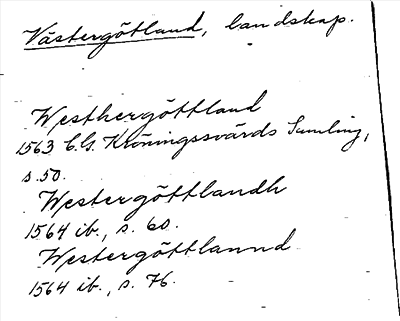 Västergötland, landskap.
Westhergöttland
1563 C.G. Kröningssvärds Samling,
s. 50.
Westergöttlandh
1564 ib., s. 60.
Westergöttlannd
1564 ib., s. 76.